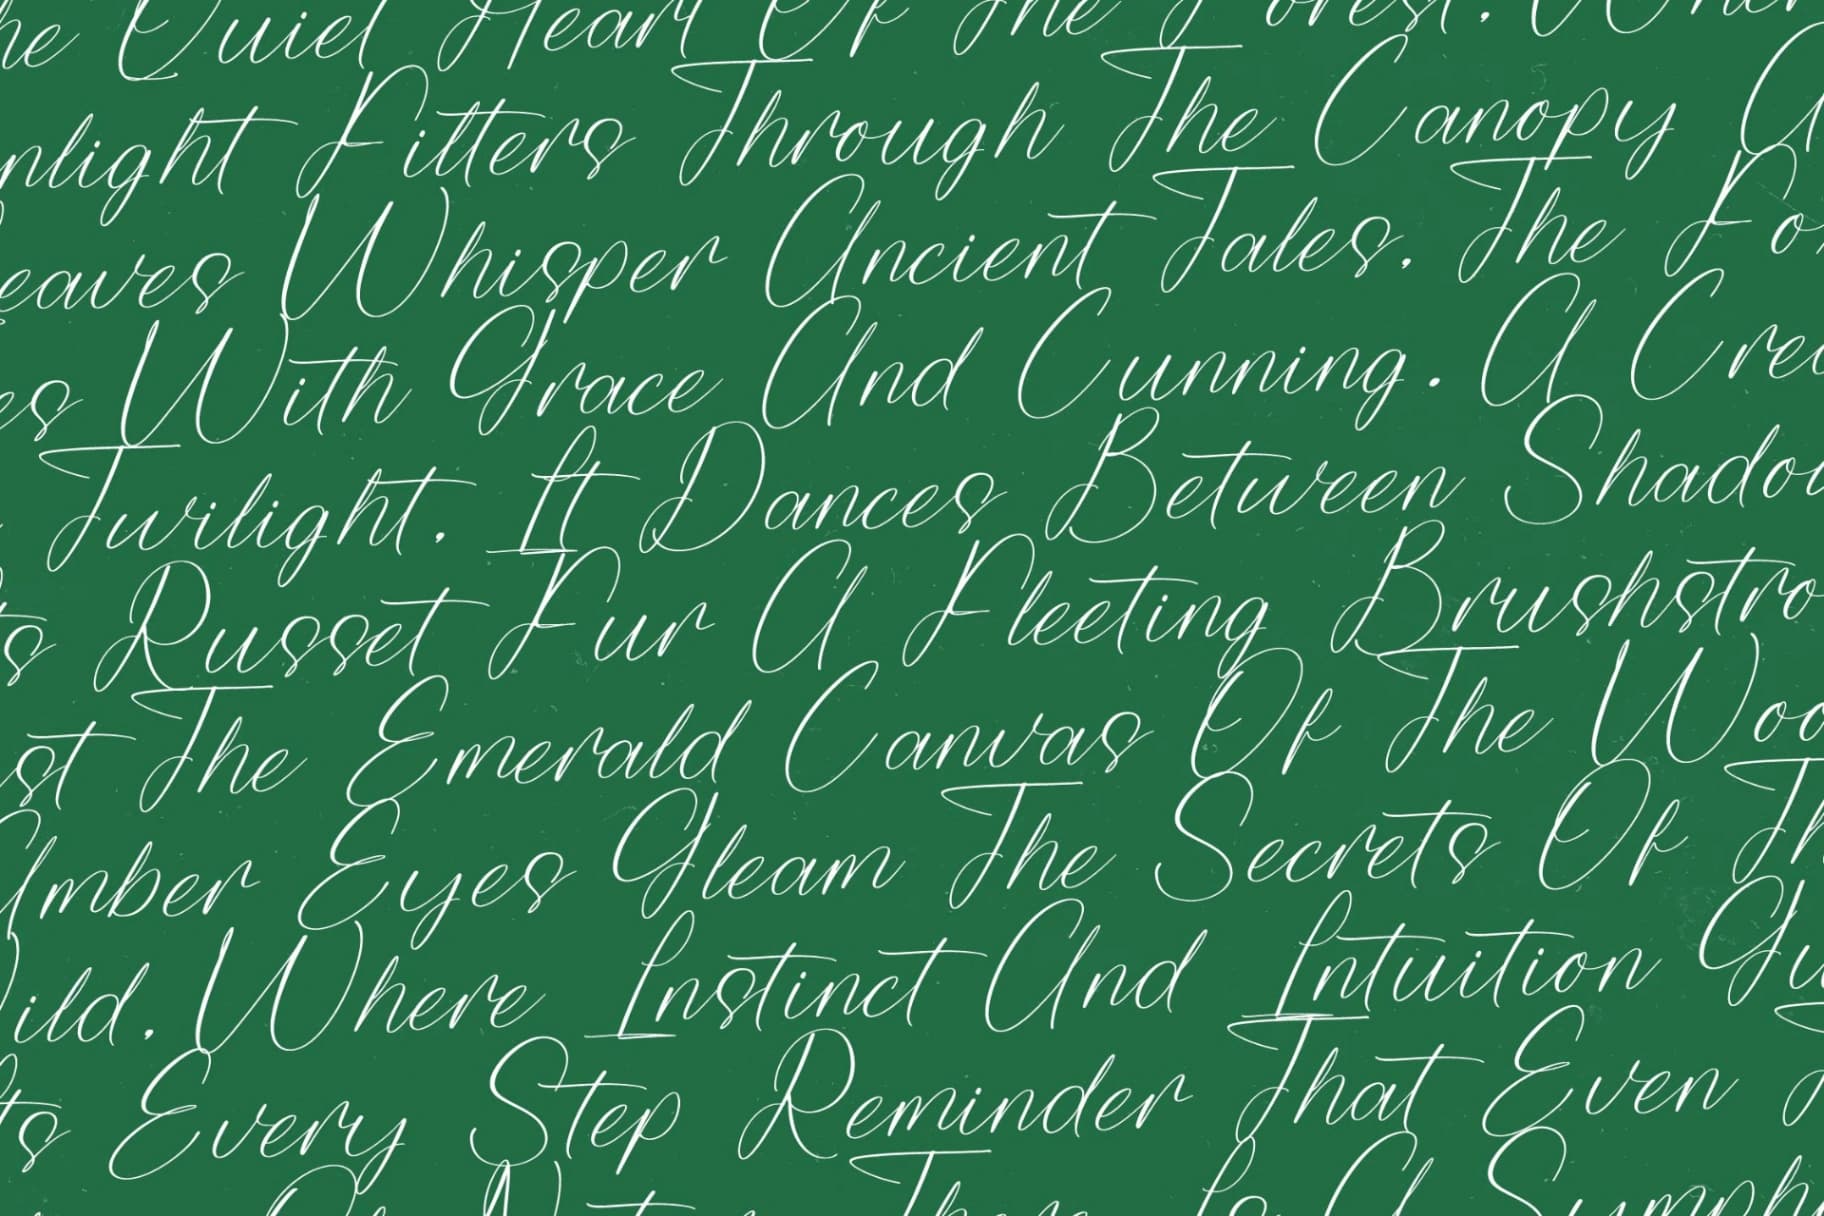 he Quiet Heart Of The Forest. Wher
nlight Filters Through The Canopy A
eaves Whisper Ancient Tales. The Fo
es With Grace And Cunning. A Crea
Twilight. It Dances Between Shado
ts Russet Fur A Fleeting Brushstro
st The Emerald Canvas Of The Woo
Amber Eyes Gleam The Secrets Of Th
ild. Where Instinct And Intuition Gu
ts Every Step Reminder That Even
Of Nat There Is A Symph